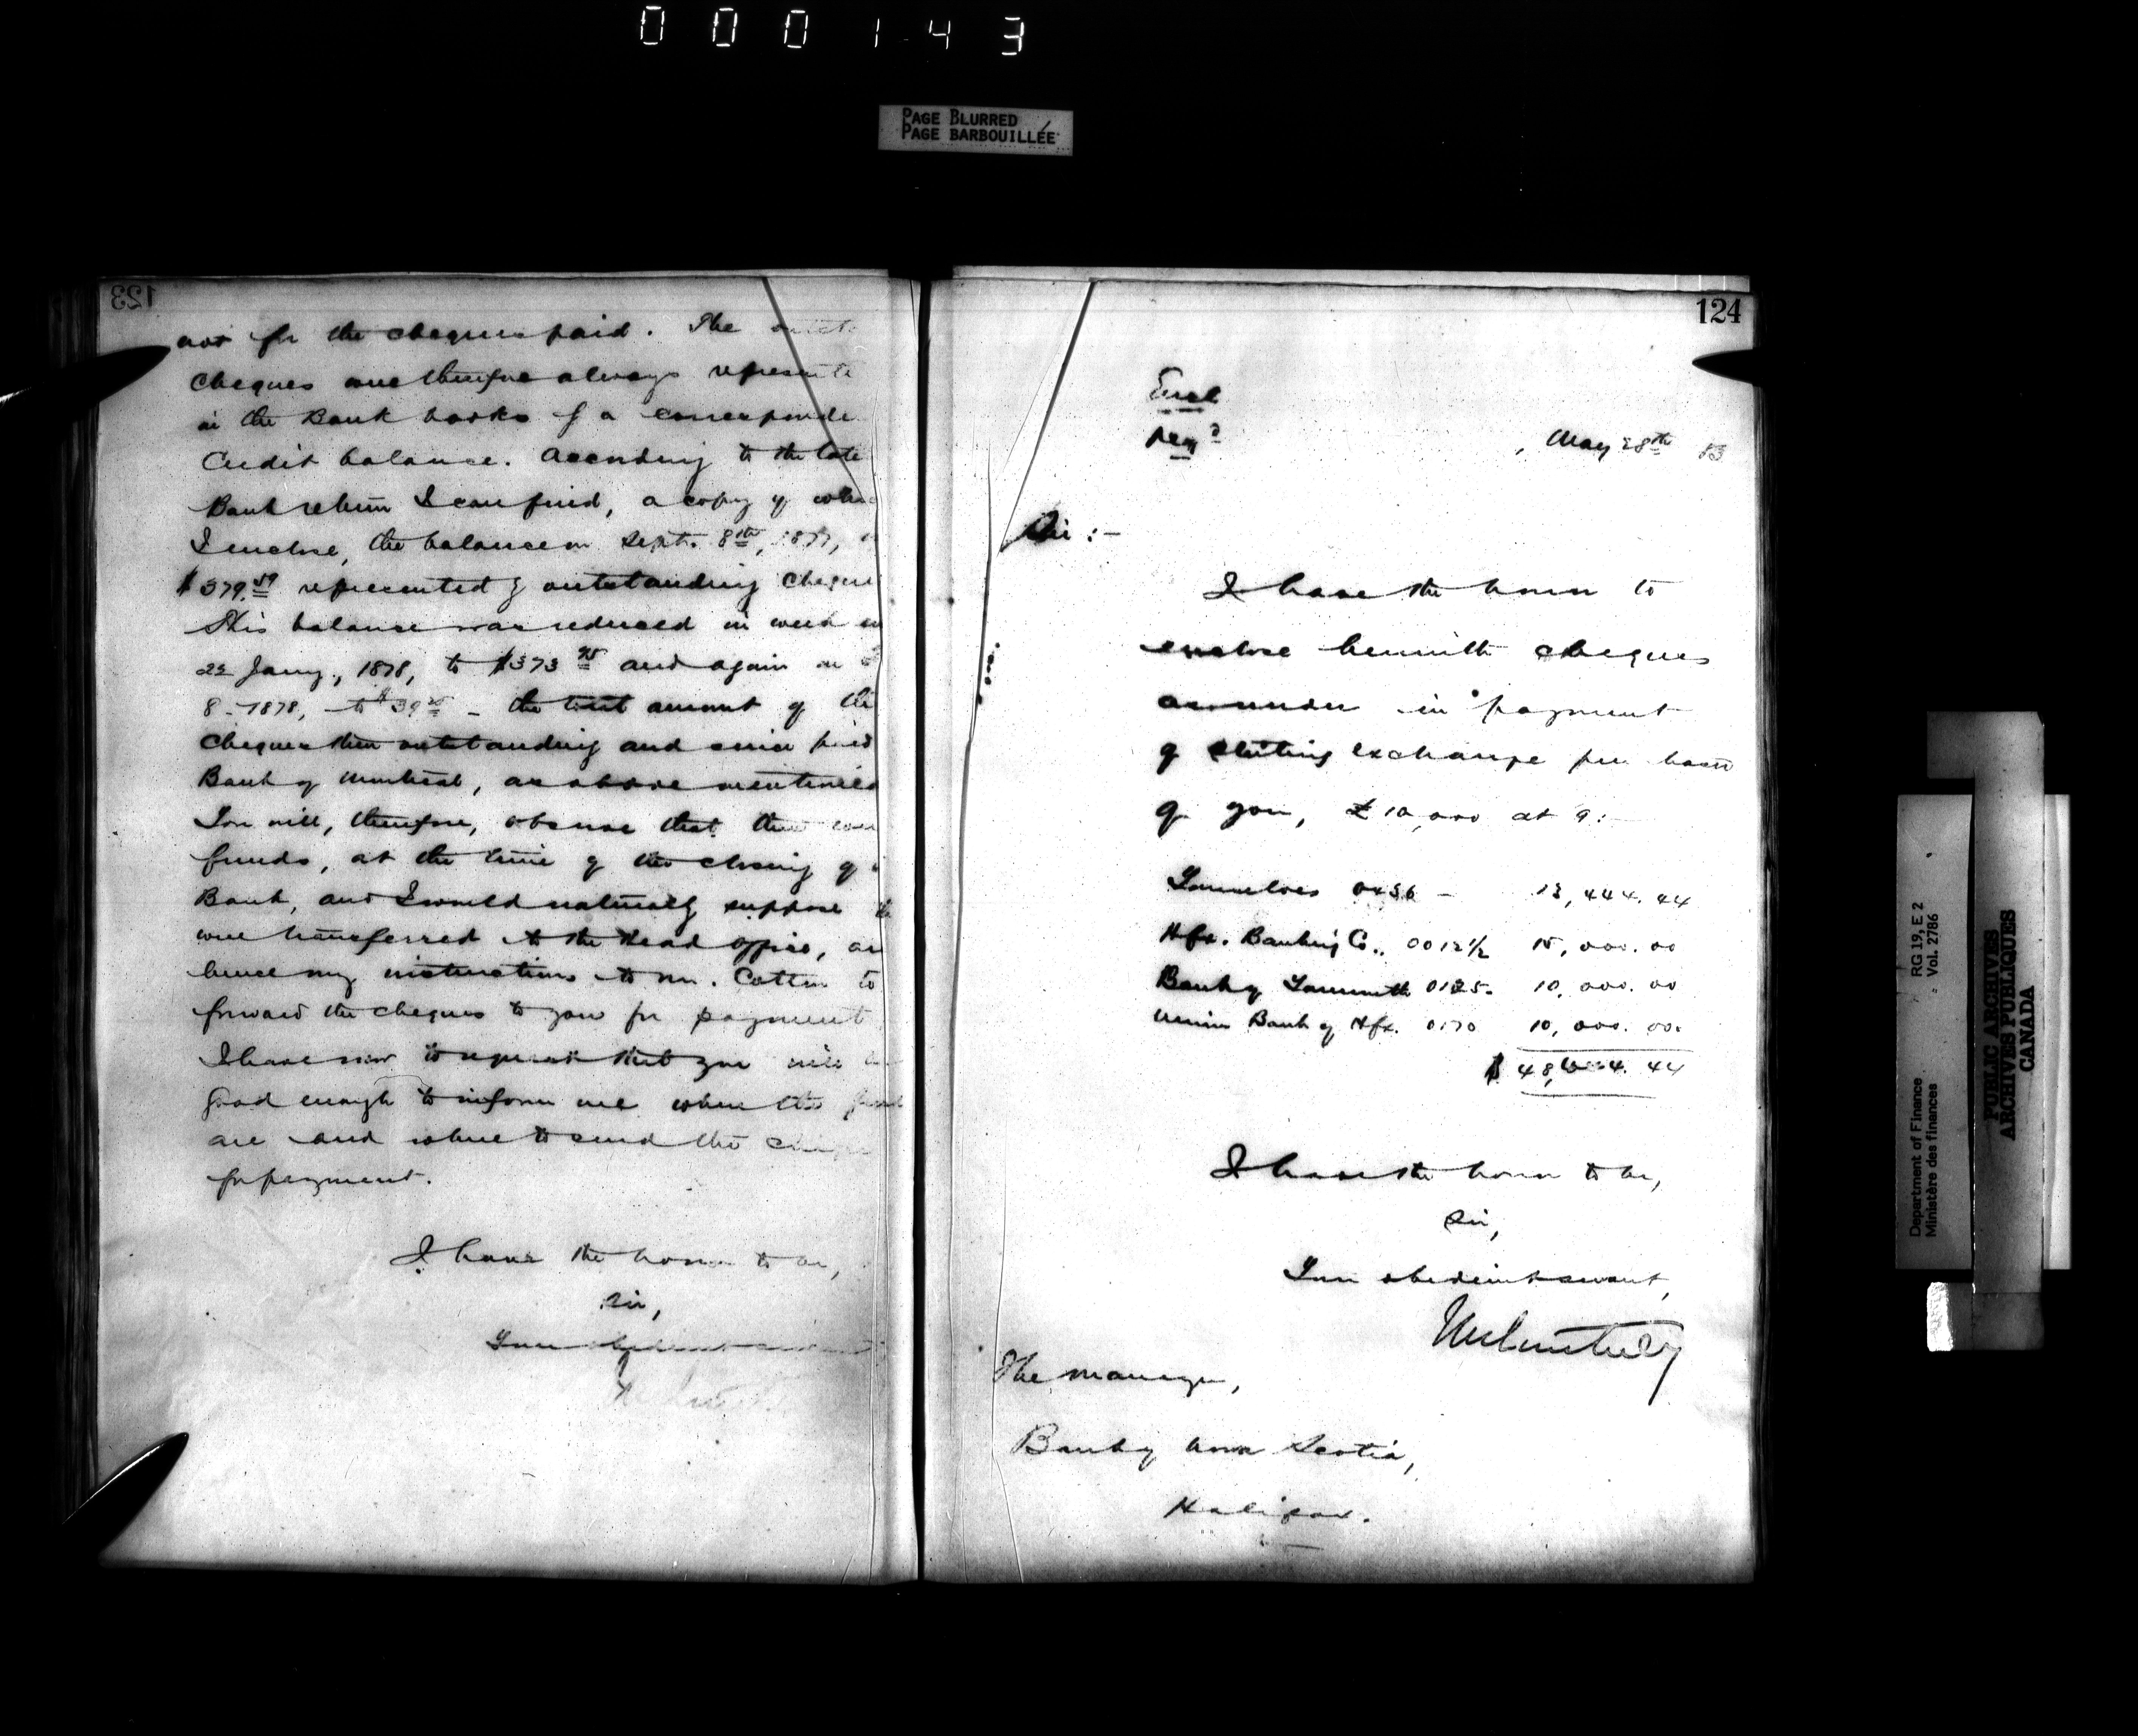 000143
PAGE BLURRED
PAGE BARBOUILLÉE
123
not for the cheques paid. The
cheques were therefore always represente
in the Bank books by a corresponde
Credit balance. According to the late
Bank return I can find, a copy of which
I enclose, the balance on Sept. 8th, 1877,
$379.59 represented by outstanding cheque
This balance was reduced in week
22 Jany., 1878, to $373 95 and again on
8 - 1878, to $39 - the amount of the
cheques then outstanding and since paid
Bank of Montreal, as above mentioned
You will, therefore, observe that there were
funds, at the time of the closing of
Bank, and I would naturally suppose
were transferred to the Head Office, an
hence my instructions to Mr. Cotton to
forward the cheques to you for payment
I have now to request that you will
good enough to inform me where the
are and where to send the
for payment.
I have the honor to be,
Sir,
Your obedient servant
124
Encl
Reg d
, May 28th 83
Sir :-
I have the honor to
enclose herewith cheques
as under in payment
of sterling exchange pur hased
of you, £10,000 at 9 :-
Yourselves 0436 - 13,444.44
Hfx. Banking Co., 0012½ 15,000.00
Bank of Yarmouth 0135. 10,000.00
Union Bank of Hfx. 0170 10,000.00
$48,444.44
I have the honor to be,
Sir,
Your obedient servant,
The Manager,
Bank of Nova Scotia,
Halifax.
RG 19, E 2
Vol. 2786
Department of Finance
Ministère des finances
PUBLIC ARCHIVES
ARCHIVES PUBLIQUES
CANADA